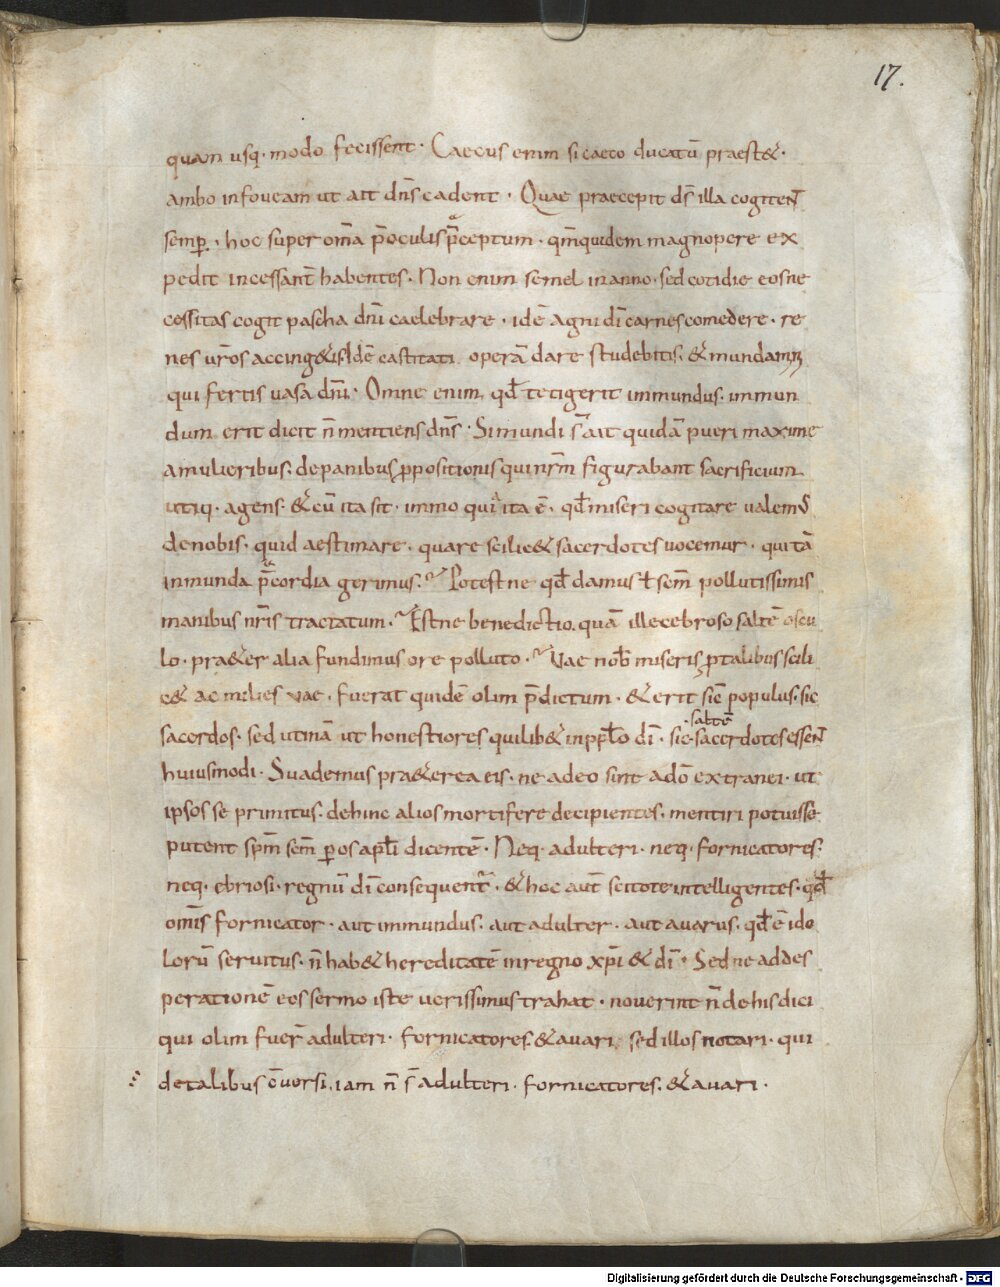 17.
quam usq· modo fecissent· Caecus enim si caeco ducatū praest&·
ambo in foveam ut ait dn̄s cadent· Quae praecepit ds̄ illa cogiten̄t
semp̱· hoc super om̄a p̄ oculis p̄ceptum· qm̄ quidem magnopere ex
pedit incessant̄ habentes· Non enim semel in anno· sed cotidie eos ne
cessitas cogit pascha dn̄i caelebrare· idē agni dī carnes comedere· re
nes ūros accing&is· Idē castitati operā dare studebitis· & mundamini
qui fertis uasa dn̄i· Omne enim qđ tetigerit inmundus· inmun
dum erit dicit n̄ mentiens dn̄s· Si mundi s̄ ait quidā pueri maxime
a mulieribus· de panibus p̱positionis qui nr̄m figurabant sacrificium
utiq· agens· & cū ita sit· immo quia ita ē· qđ miseri cogitare ualem̄
de nobis· quid aestimare· quare scilic& sacerdotes uocemur· qui tā
inmunda p̄cordia gerimus· Potest ne qđ damus ł sem̄ pollutissimis
manibus nr̄is tractatum· Est ne benedictio quā illecebroso saltē oscu
lo· pra&er alia fundimus ore polluto· Vae nob̄ miseris p̱ talibus scili
c& ac milies vae· fuerat quidē olim p̄dictum· & erit sic̄ populus· sic
saltē
sacerdos· sed utinā ut honestiores quilib& in pp̄lo dī· sic sacerdotes essen̄t
huiusmodi· Suademus pra&erea eis· ne adeo sint a dō extranei· ut
ipsos se primitus· dehinc alios mortifere decipientes· mentiri potuisse
putent sp̄m sc̄m p̱ os apl̄i dicentē· Neq· adulteri· neq· fornicatores·
neq· ebriosi· regnū dī consequent̄· & hoc aut̄ scitote intelligentes· qđ
omīs fornicator· aut inmundus· aut adulter· aut avarus· qđ ē ido
lorū servitus· n̄ hab& hereditatē in regno xp̄i & dī· Sed ne addes
perationē eos sermo iste verissimus trahat· noverint n̄ de his dici
qui olim fuer̄ adulteri· fornicatores· & avari· sed illos notari· qui
de talibus c̄uorsi· iam n̄ s̄ adulteri· fornicatores· & avari·
Digitalisierung gefördert durch die Deutsche Forschungsgemeinschaft - DFG